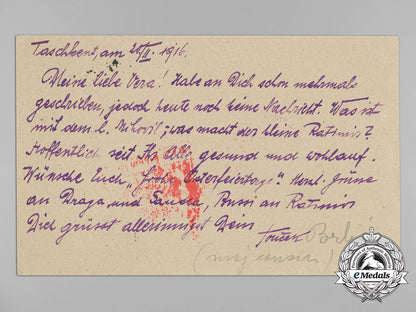 Taschkent, am 20/II. 1916.
Meine liebe Vera! Habe an Dich schon mehrmals
geschrieben, jedoch heute noch keine Nachricht. Was ist
mit dem l. Mihovil; was macht der kleine Ratimir?
Hoffentlich seit Ihr alle gesund und wohlauf.
Wünsche Euch „Frohe Osterfeiertage". Herzl. Grüße
an Draga und Bussi an Ratimir
Dich grüsst allerinnigst Dein
(moj cousin)
eMedals